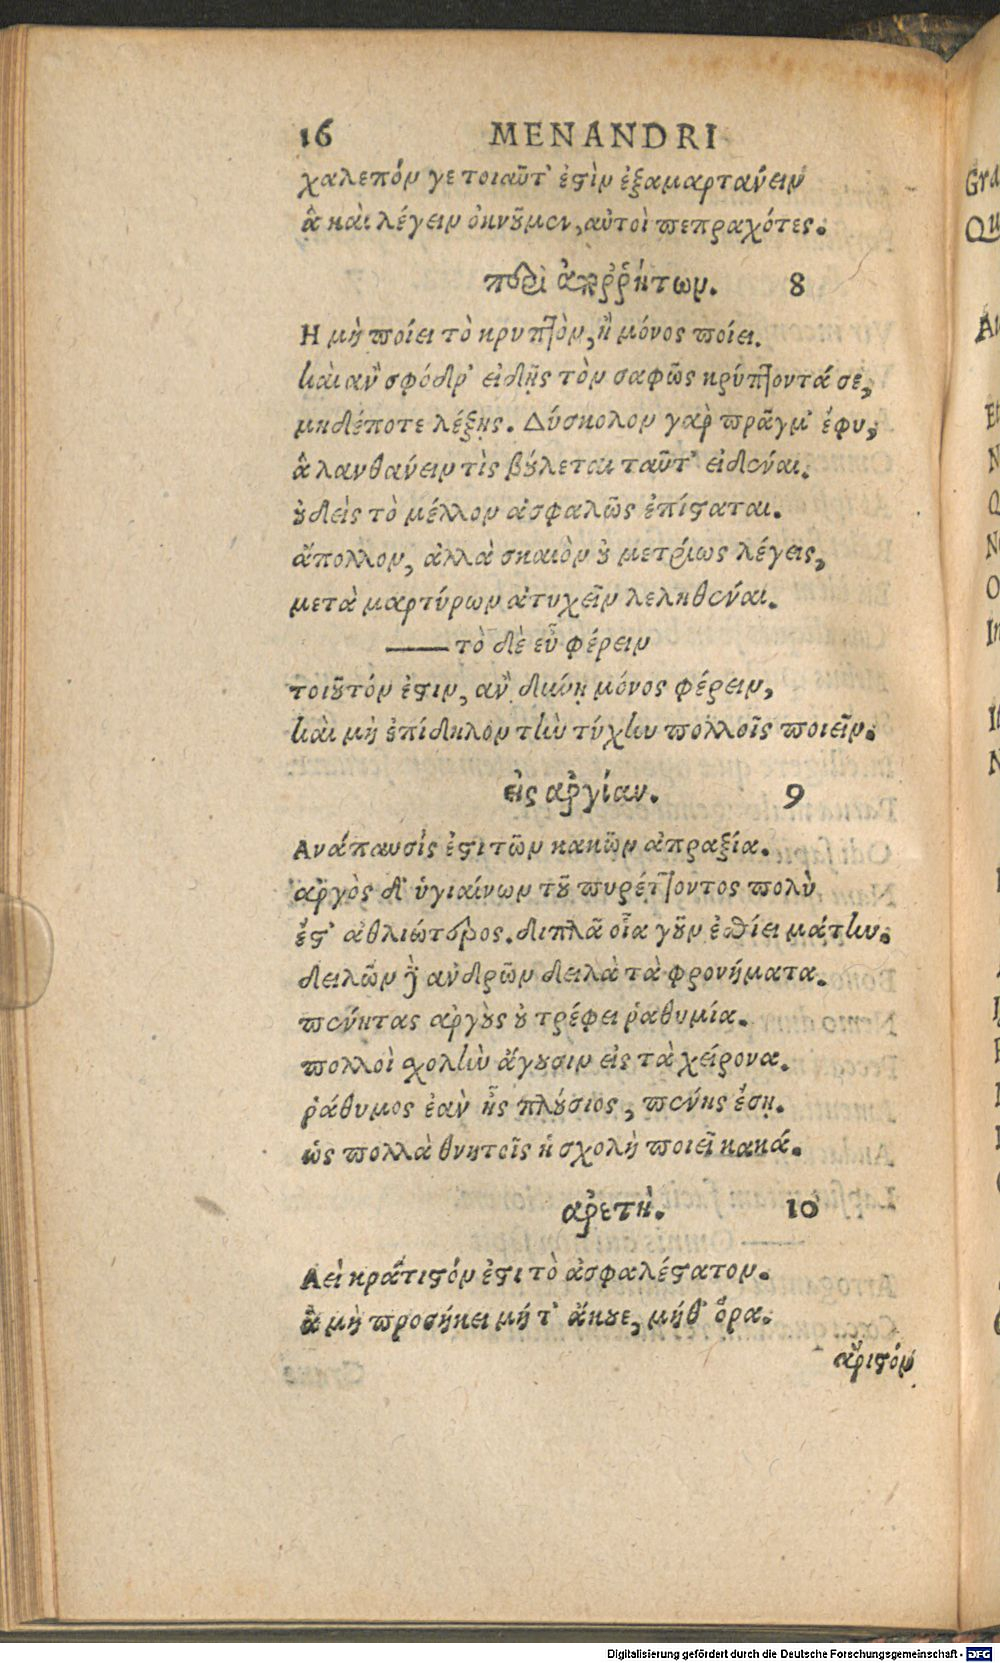 16 MENANDRI
χαλεπόν γε τοιαῦτ' ἐστὶν ἐξαμαρτάνειν
ἃ καὶ λέγειν ὀκνοῦμεν, αὐτοὶ πεπραχότες.
περὶ ἀπορρήτων. 8
Η μὴ ποίει τὸ κρυπτὸν, ἢ μόνος ποίει.
καὶ ἂν σφόδρ' εἰδῇς τὸν σαφῶς κρύπτοντά σε,
μηδέποτε λέξῃς. Δύσκολον γὰρ πρᾶγμ' ἔφυ,
ἃ λανθάνειν τὶς βούλεται ταῦτ' εἰδέναι.
οὐδεὶς τὸ μέλλον ἀσφαλῶς ἐπίσταται.
ἄπολλον, ἀλλὰ σκαιὸν οὐ μετρίως λέγεις,
μετὰ μαρτύρων ἀτυχεῖν λεληθέναι.
—— τὸ δὲ εὖ φέρειν
τοιοῦτόν ἐστιν, ἂν δύνῃ μόνος φέρειν,
καὶ μὴ ἐπίδηλον τὴν τύχην πολλοῖς ποιεῖν.
εἰς ἀργίαν. 9
Ανάπαυσίς ἐστι τῶν κακῶν ἀπραξία.
ἀργὸς δ' ὑγιαίνων τοῦ πυρέττοντος πολὺ
ἔστ' ἀθλιώτερος. διπλᾶ οἷα γοῦν ἐσθίει μάτην.
δειλῶν γὰρ ἀνδρῶν δειλὰ τὰ φρονήματα.
πένητας ἀργοὺς οὐ τρέφει ῥαθυμία.
πολλοὶ σχολὴν ἄγουσιν εἰς τὰ χείρονα.
ῥάθυμος ἐὰν ᾖς πλούσιος, πένης ἔσῃ.
ὡς πολλὰ θνητοῖς ἡ σχολὴ ποιεῖ κακά.
ἀρετὴ. 10
Αεὶ κράτιστόν ἐστι τὸ ἀσφαλέστατον.
ἃ μὴ προσήκει μήτ' ἄκουε, μήθ' ὅρα.
ἄριστόν
Digitalisierung gefördert durch die Deutsche Forschungsgemeinschaft - DFG